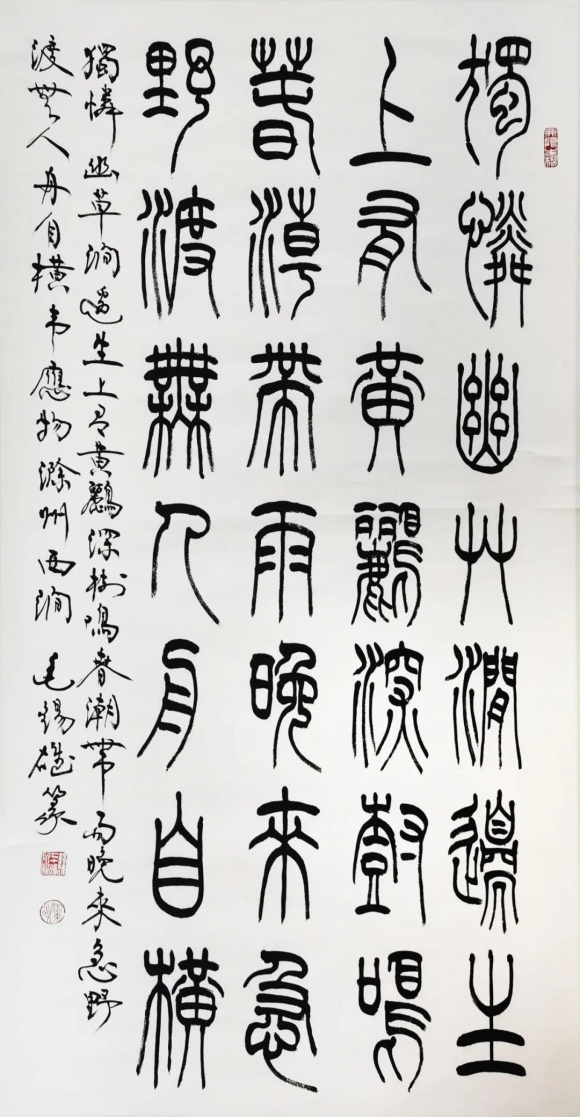 獨憐幽艸澗邊生
上有黃鸝深樹鳴
春潮帶雨晚來急
野渡無人舟自橫
獨憐幽草澗邊生上有黃鸝深樹鳴春潮帶雨晚來急野
渡無人舟自橫韋應物滁州西澗毛錫雄篆